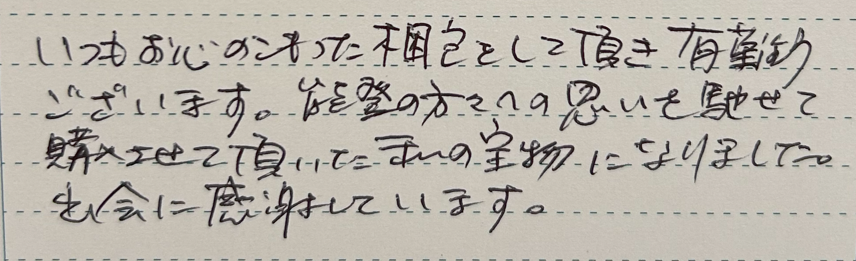 いつもお心のこもった梱包をして頂き有難う
ございます。能登の方々への思いを馳せて
購入させて頂いた私の宝物になりました。
出会に感謝しています。